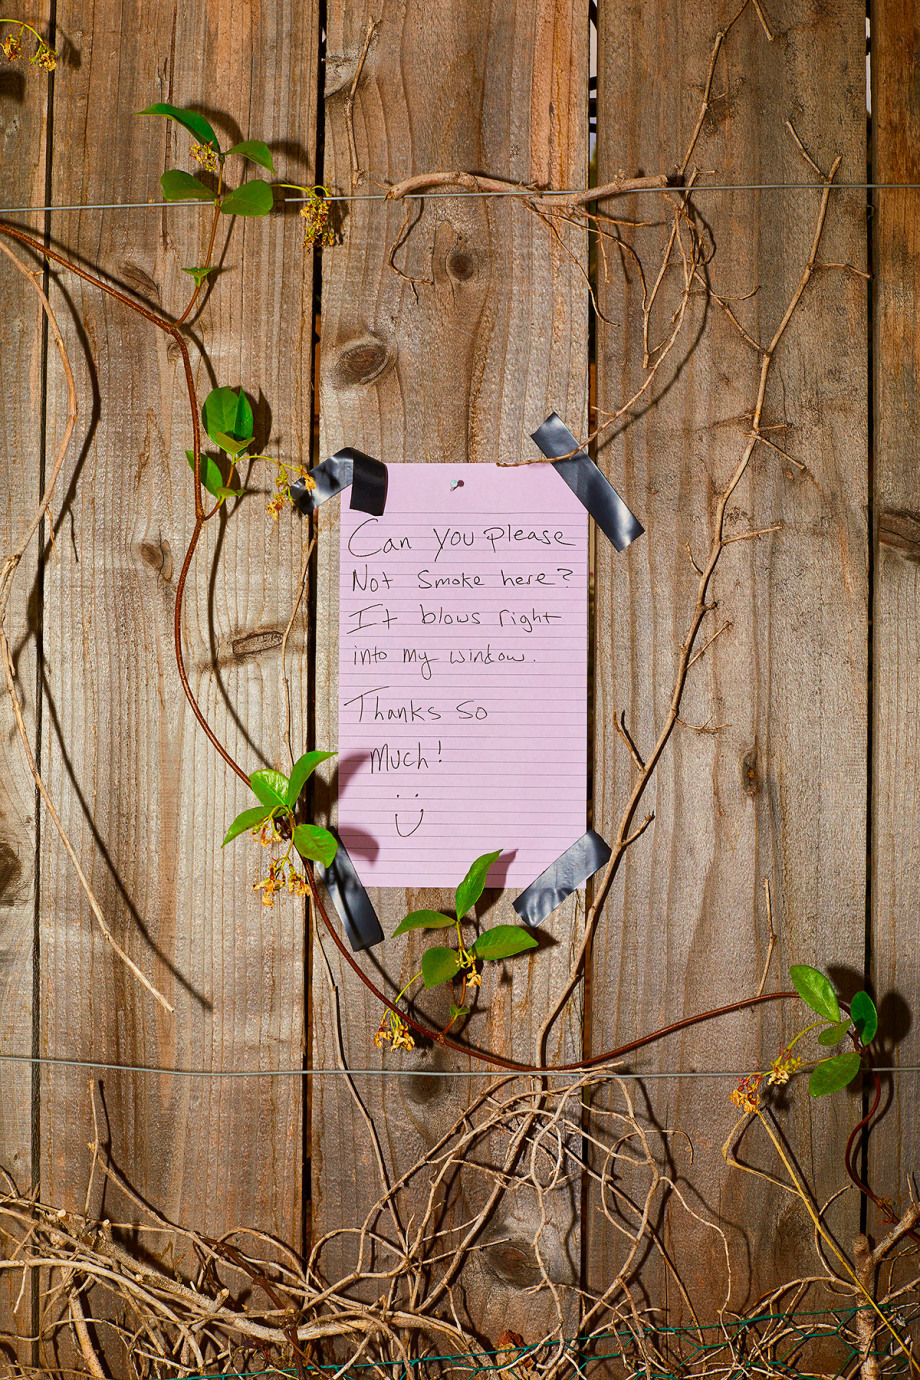 Can you please
Not Smoke here?
It blows right
into my window.
Thanks so
Much!